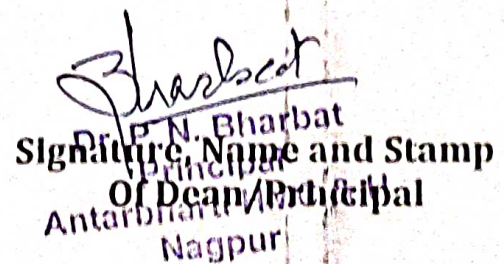 Bharbat
Dr. P. N. Bharbat
Signature, Name and Stamp
Principal
Of Dean/Principal
Nagpur